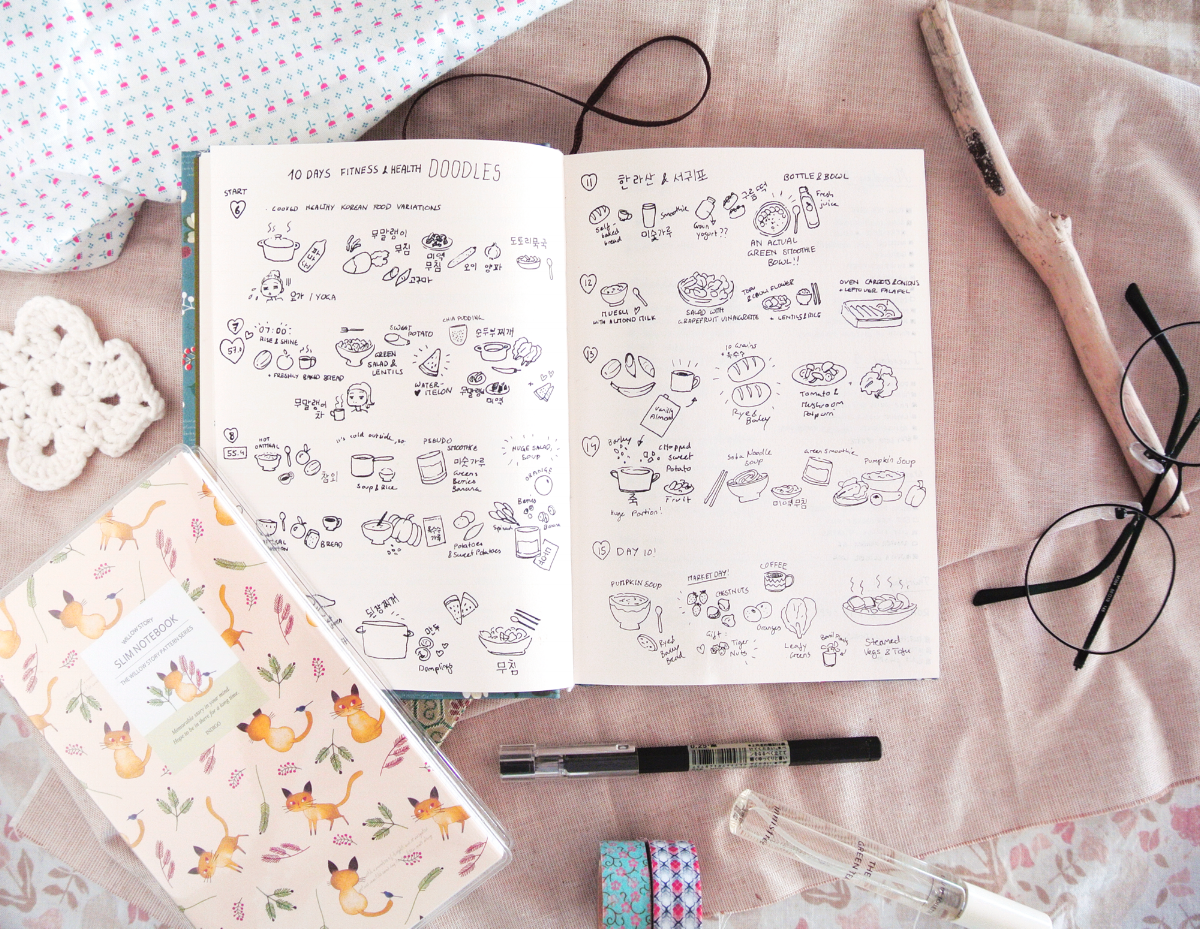 10 DAYS FITNESS & HEALTH DOODLES
START
6
COOKED HEALTHY KOREAN FOOD VARIATIONS
무말랭이
무침
미역
무침
오이
양파
도토리묵국
고구마
요가 / YOGA
7
57.
07:00
RISE & SHINE
+ FRESHLY BAKED BREAD
GREEN
SALAD &
LENTILS
SWEET
POTATO
CHIA PUDDING
WATER-
MELON
순두부찌개
무말랭이
미역
무말랭이
차
8
55.4
HOT
OATMEAL
참외
it's cold outside, so
Soup & Rice
PSEUDO
SMOOTHIE
미숫가루
Greens
Berries
Banana
HUGE SALAD,
SOUP
ORANGE
BREAD
Potatoes
& Sweet Potatoes
Berries
Spinach
된장찌개
만두
Dumplings
무침
11
한라산 & 서귀포
BOTTLE & BOWL
self
baked
bread
Smoothie
미숫가루
Grain
yogurt??
구름떡
Fresh
juice
AN ACTUAL
GREEN SMOOTHIE
BOWL!!
12
MUESLI
WITH ALMOND MILK
SALAD WITH
GRAPEFRUIT VINAIGRETTE
TOFU
& CAULIFLOWER
+ LENTILS & RICE
OVEN CARROTS & ONIONS
+ LEFTOVER FALAFEL
13
Vanilla
Almond
10 Grains
Rye &
Barley
Tomato &
Mushroom
14
Barley
Chopped
Sweet
Potato
죽
Fruit
Huge Portion!
Soba Noodle
Soup
미역무침
Green Smoothie
Pumpkin Soup
15
DAY 10!
PUMPKIN SOUP
Rye &
Barley
Bread
MARKET DAY!
CHESTNUTS
Gift:
Tiger
Nuts
COFFEE
Oranges
Leafy
Greens
Basil Plant
Steamed
Vegs & Tofu
WILLOW STORY
SLIM NOTEBOOK
THE WILLOW STORY PATTERN SERIES
Memorable story in your mind
Hope to be in there for a long time.
INDIGO
0.25
innisfree
THE
GREEN TEA